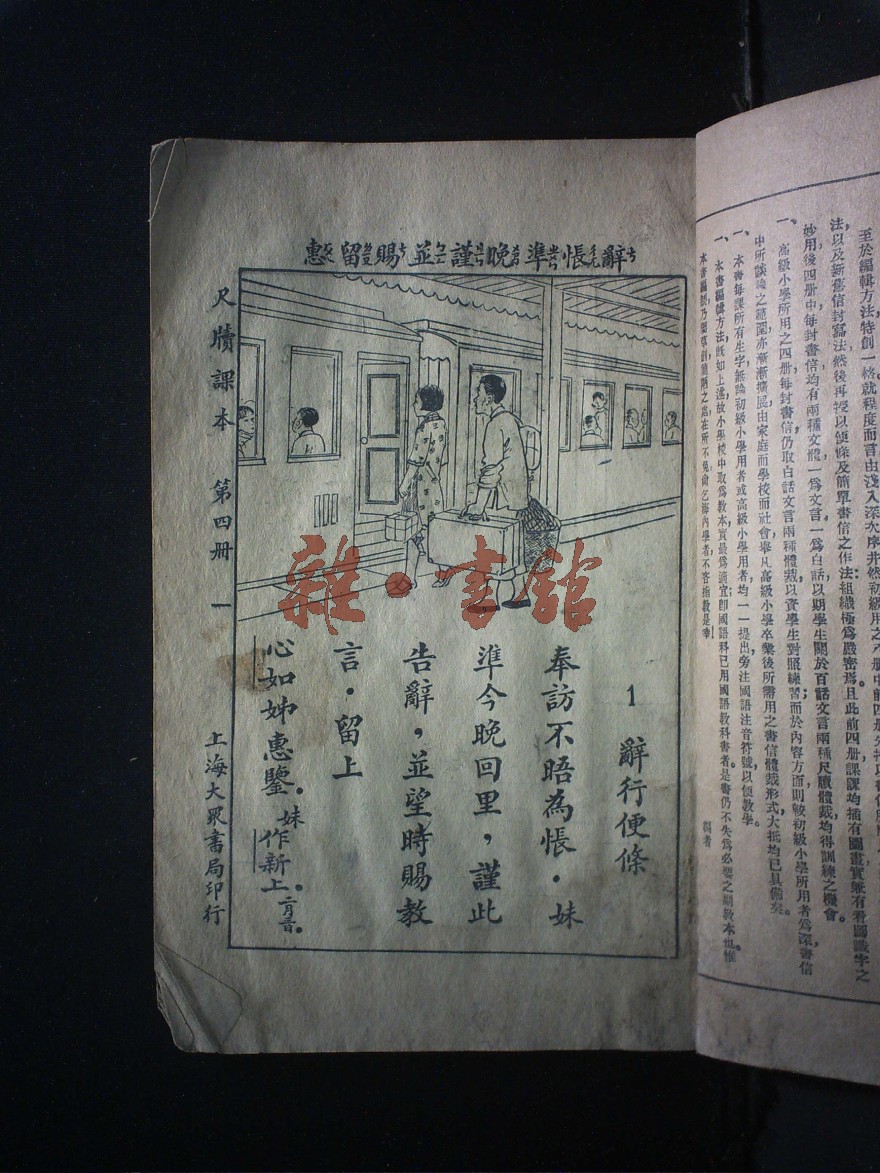 至於編輯方法特創一格就程度而言由淺入深次序井然初級用之
法以及新舊信封寫法然後再授以便條及簡單書信之作法組織極爲嚴密焉且此前四册課課均插有圖畫實兼有看圖識字之
妙用後四册中每封書信均有兩種文體一爲文言一爲白話以期學生關於白話文言兩種尺牘體裁均得訓練之機會。
一、高級小學所用之四册每封書信仍取白話文言兩種體裁以資學生對照練習;而於內容方面則較初級小學所用者爲深書信
中所談論之範圍亦漸漸擴展由家庭而學校而社會舉凡高級小學卒業後所需用之書信體裁形式大抵均已具備矣。
一、本書每課所有生字無論初級小學用者或高級小學用者均一一提出旁注國語注音符號以便教學。
一、本書編輯方法既如上述故小學校中取爲教本實最爲適宜即國語科已用國語教科書者是書仍不失爲必要之副教本也惟
本書編制乃屬草創簡陋之處在所不免尙乞海內學者不吝指教是幸
編者
辭悵準晚謹並賜留惠
1 辭行便條
奉訪不晤為悵。妹
準今晚回里,謹此
告辭,並望時賜教
言。留上
心如姊惠鑒。妹作新上。
尺牘課本 第四册 一 上海大眾書局印行
雜·書館